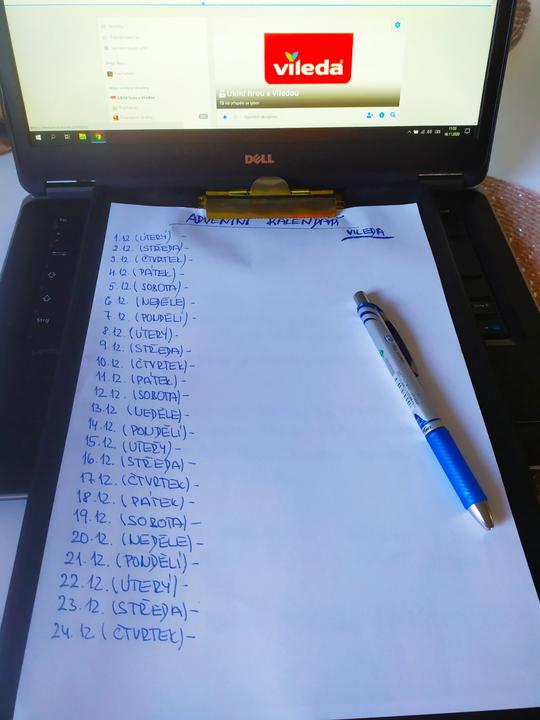 vileda
Úklid hrou s Viledou
DELL
ADVENTNÍ KALENDÁŘ
VILEDA
1.12. (ÚTERÝ) -
2.12. (STŘEDA) -
3.12. (ČTVRTEK) -
4.12. (PÁTEK) -
5.12. (SOBOTA) -
6.12. (NEDĚLE) -
7.12. (PONDĚLÍ) -
8.12. (ÚTERÝ) -
9.12. (STŘEDA) -
10.12. (ČTVRTEK) -
11.12. (PÁTEK) -
12.12. (SOBOTA) -
13.12. (NEDĚLE) -
14.12. (PONDĚLÍ) -
15.12. (ÚTERÝ) -
16.12. (STŘEDA) -
17.12. (ČTVRTEK) -
18.12. (PÁTEK) -
19.12. (SOBOTA) -
20.12. (NEDĚLE) -
21.12. (PONDĚLÍ) -
22.12. (ÚTERÝ) -
23.12. (STŘEDA) -
24.12 (ČTVRTEK) -
Ctrl